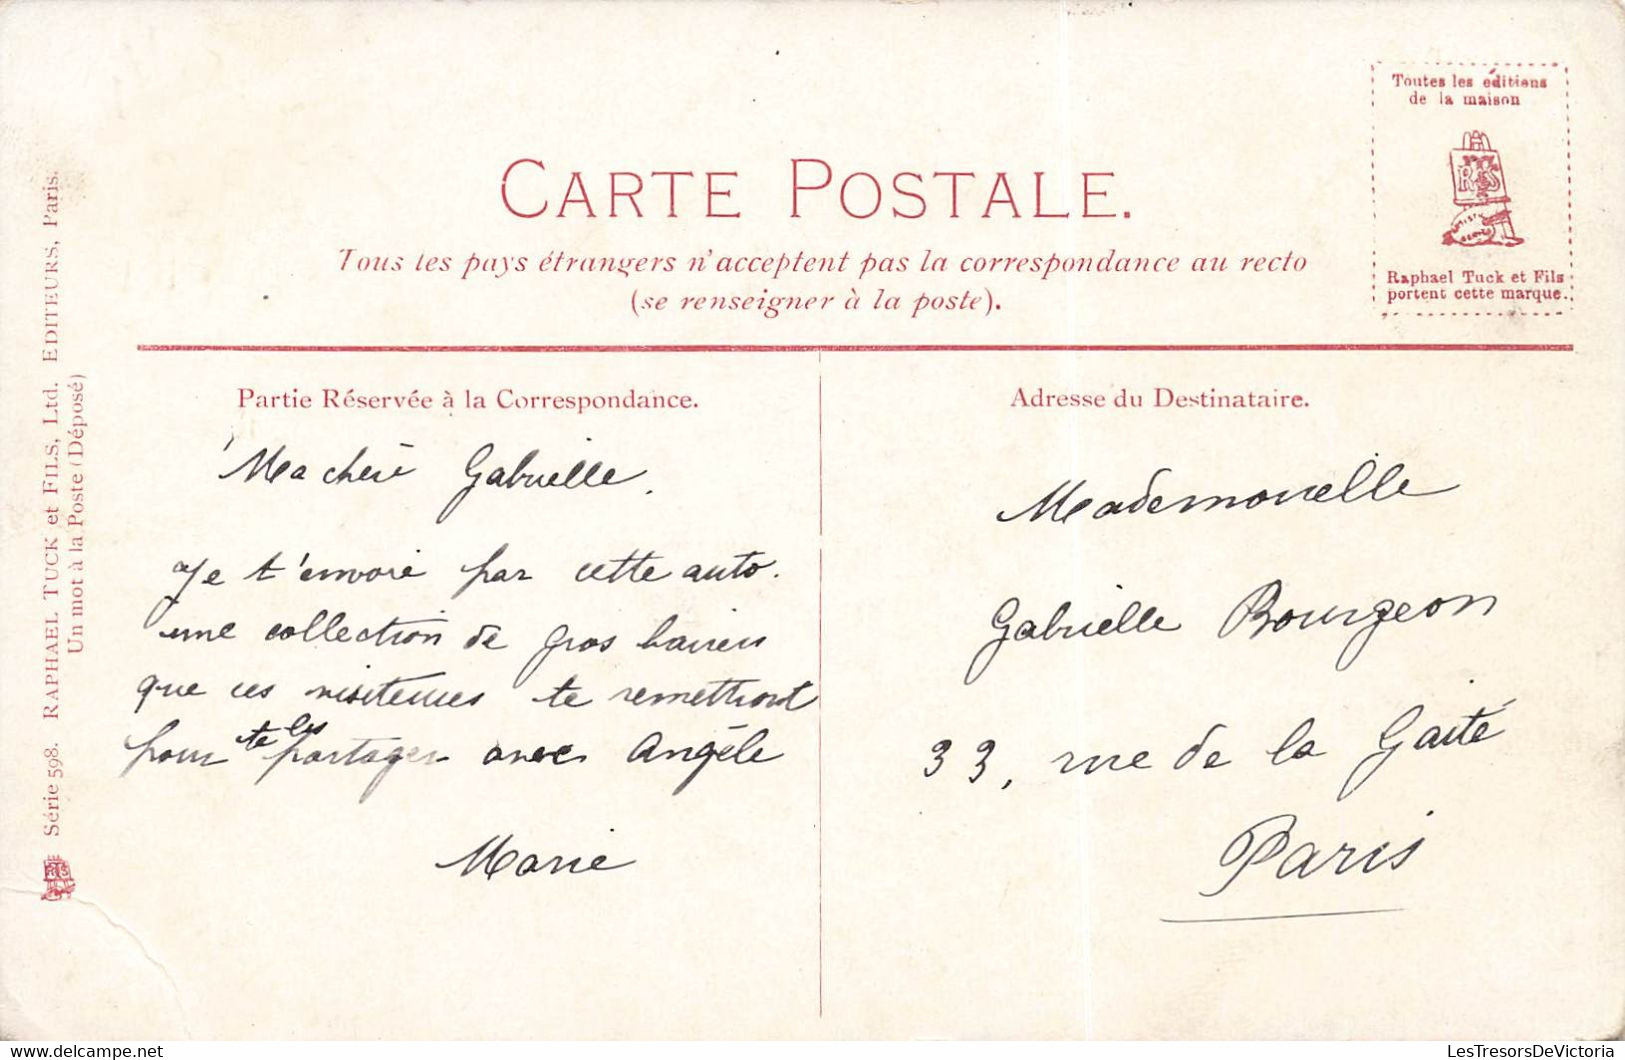 Toutes les éditions
de la maison
RTS
CARTE POSTALE.
Tous les pays étrangers n'acceptent pas la correspondance au recto
(se renseigner à la poste).
Raphael Tuck et Fils
portent cette marque.
Série 598. RAPHAEL TUCK et FILS, Ltd. EDITEURS, Paris.
Un mot à la Poste (Déposé)
RTS
Partie Réservée à la Correspondance.
Ma chère Gabrielle,
Je t'envoie par cette auto.
une collection de gros baisers
que ces visiteuses te remettront
pour te les partager avec Angèle
Marie
Adresse du Destinataire.
Mademoiselle
Gabrielle Bourgeon
33, rue de la Gaité
Paris
LesTresorsDeVictoria